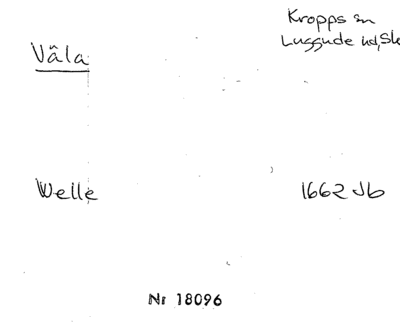 Kropps sn
Luggude hd, Sk
Våla
Welle
1662 Jb
Nr 18096